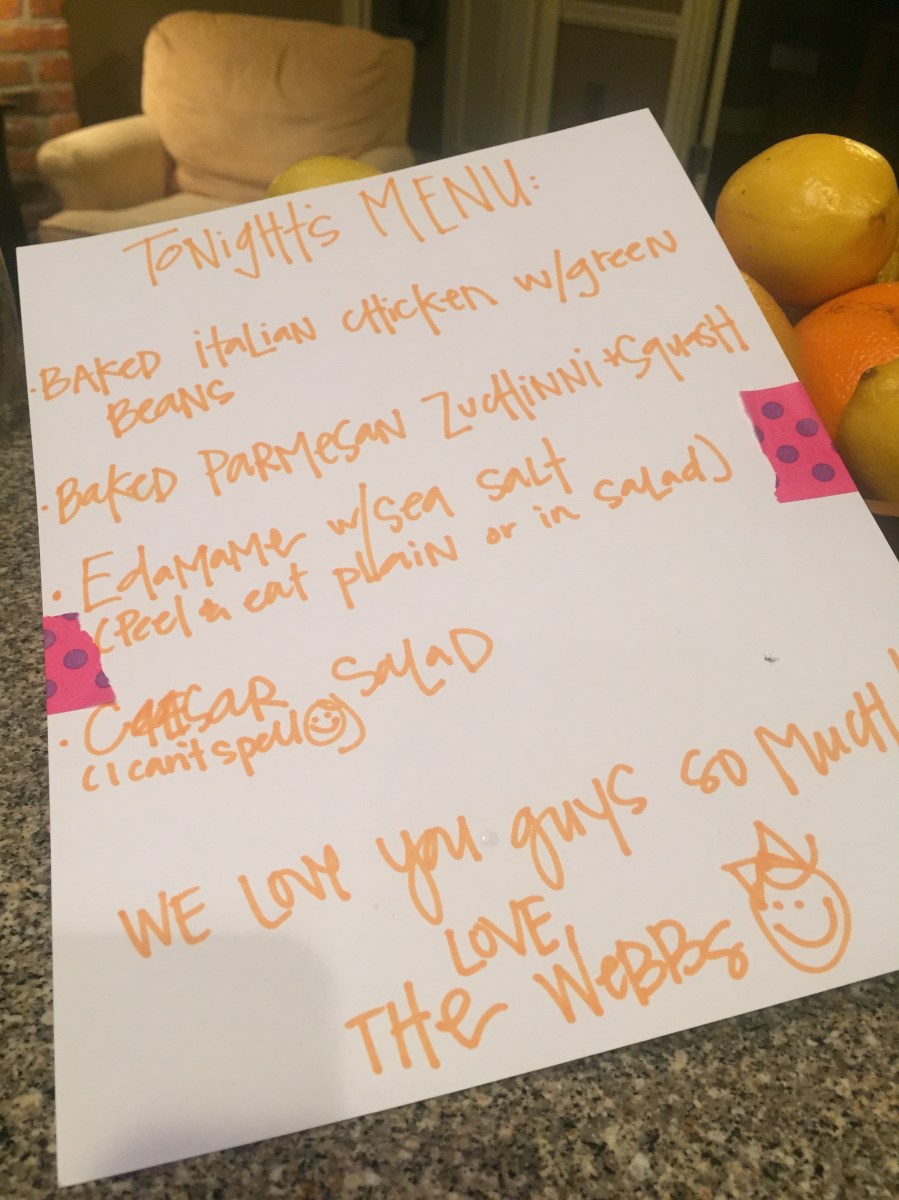 TONight's MENU:
• BAKED italian chicken w/green
Beans
• BaKED PaRMesaN ZuchinNi + SquasH
• EdaMaMe w/sea salt
(peel & eat plain or in salad)
• CaesaR SalaD
(I can't spell ☺)
WE love you guys so Much!
LOVE,
THe WeBBs